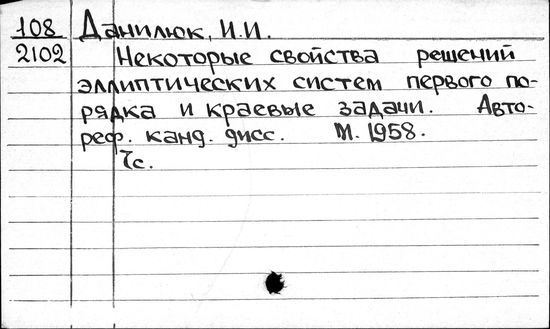 108 Данилюк, И.И.
2102 Некоторые свойства решений
эллиптических систем первого по-
рядка и краевые задачи. Авто-
реф. канд. дисс. М. 1958.
7с.